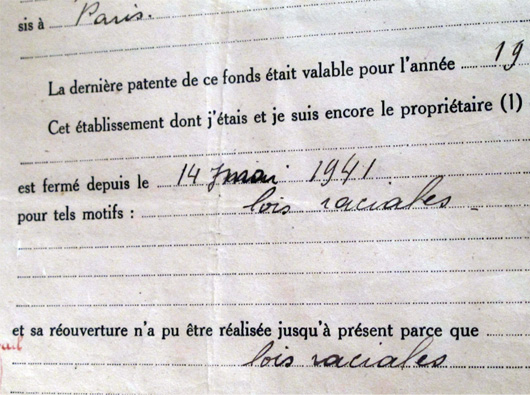 sis à Paris.
La dernière patente de ce fonds était valable pour l'année 19
Cet établissement dont j'étais et je suis encore le propriétaire (1)
est fermé depuis le 14 mai 1941
pour tels motifs : lois raciales
et sa réouverture n'a pu être réalisée jusqu'à présent parce que
lois raciales